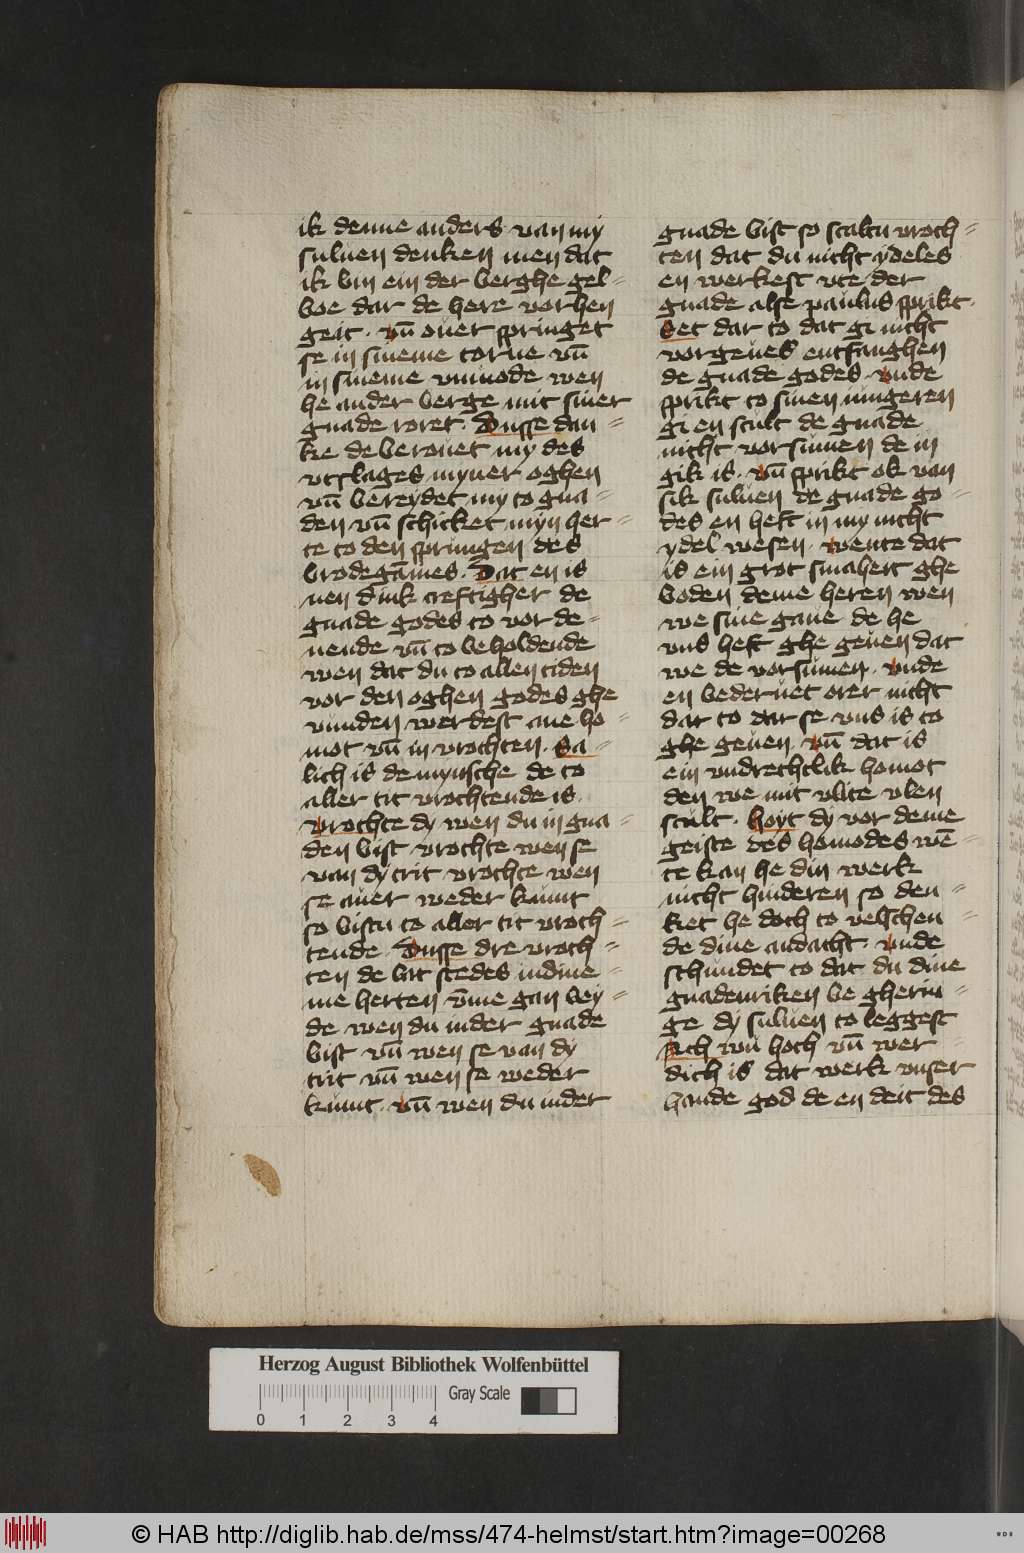 ik denne anders van my
suluen denken men dat
ik bin ein der berghe gel=
boe dar de here vorhen
geit . vn̄ ouer springet
se in sineme torne vn̄
in sineme vnmode wen
he ander berge mit siner
gnade roret . Dusse dan=
ke de berouet my des
vtslages myner oghen
vn̄ bereydet my to gna=
den vn̄ schicket myn her=
te to den springen des
brodegāmes . Dat en is
nen dink creftigher de
gnade godes to vorde=
nende vn̄ to beholdende
wen dat du to allen tiden
vor den oghen godes ghe
vunden werdest ane ho=
mot vn̄ in vrochten . Sa=
lich is de mynsche de to
aller tit vrochtende is .
vrochte dy wen du in gna=
den bist vrochte wen se
van dy trit vrochte wen
se auer weder kumt
so bistu to aller tit vroch=
tende . Dusse dre vroch=
ten de lat stedes in dine=
me herten v̄me gan bey=
de wen du in der gnade
bist vn̄ wen se van dy
trit vn̄ wen se weder
kumt . vn̄ wen du in der
gnade bist so scaltu vroch=
ten dat du nicht ydeles
en werkest vte der
gnade alse paulus sprikt .
Set dar to dat gi nicht
vorgeues entfanghen
de gnade godes . vnde
sprikt to sinen iungeren
gi en scult de gnade
nicht vorsumen de in
gik is . vn̄ sprikt ok van
sik suluen de gnade go=
des en heft in my nicht
ydel wesen . wente dat
is ein grot smaheit ghe
boden deme heren wen
we sine gaue de he
vns heft ghe geuen dat
we de vorsumen . vnde
en bederuet orer nicht
dar to dar se vns is to
ghe geuen . vn̄ dat is
ein vndrechtlik homot
den we mit vlite vlen
scult . hoyt dy vor deme
geiste des homodes wē=
te kan he din werk
nicht hinderen so den=
ket he doch to velschen=
de dine andacht . vnde
schundet to dat du dine
gnadenriken be gherin=
ge dy suluen to leggest
Ach wu hoch vn̄ wer=
dich is dat werk vnser
hande god de en deit des
Herzog August Bibliothek Wolfenbüttel
Gray Scale
0 1 2 3 4
© HAB http://diglib.hab.de/mss/474-helmst/start.htm?image=00268
WDB